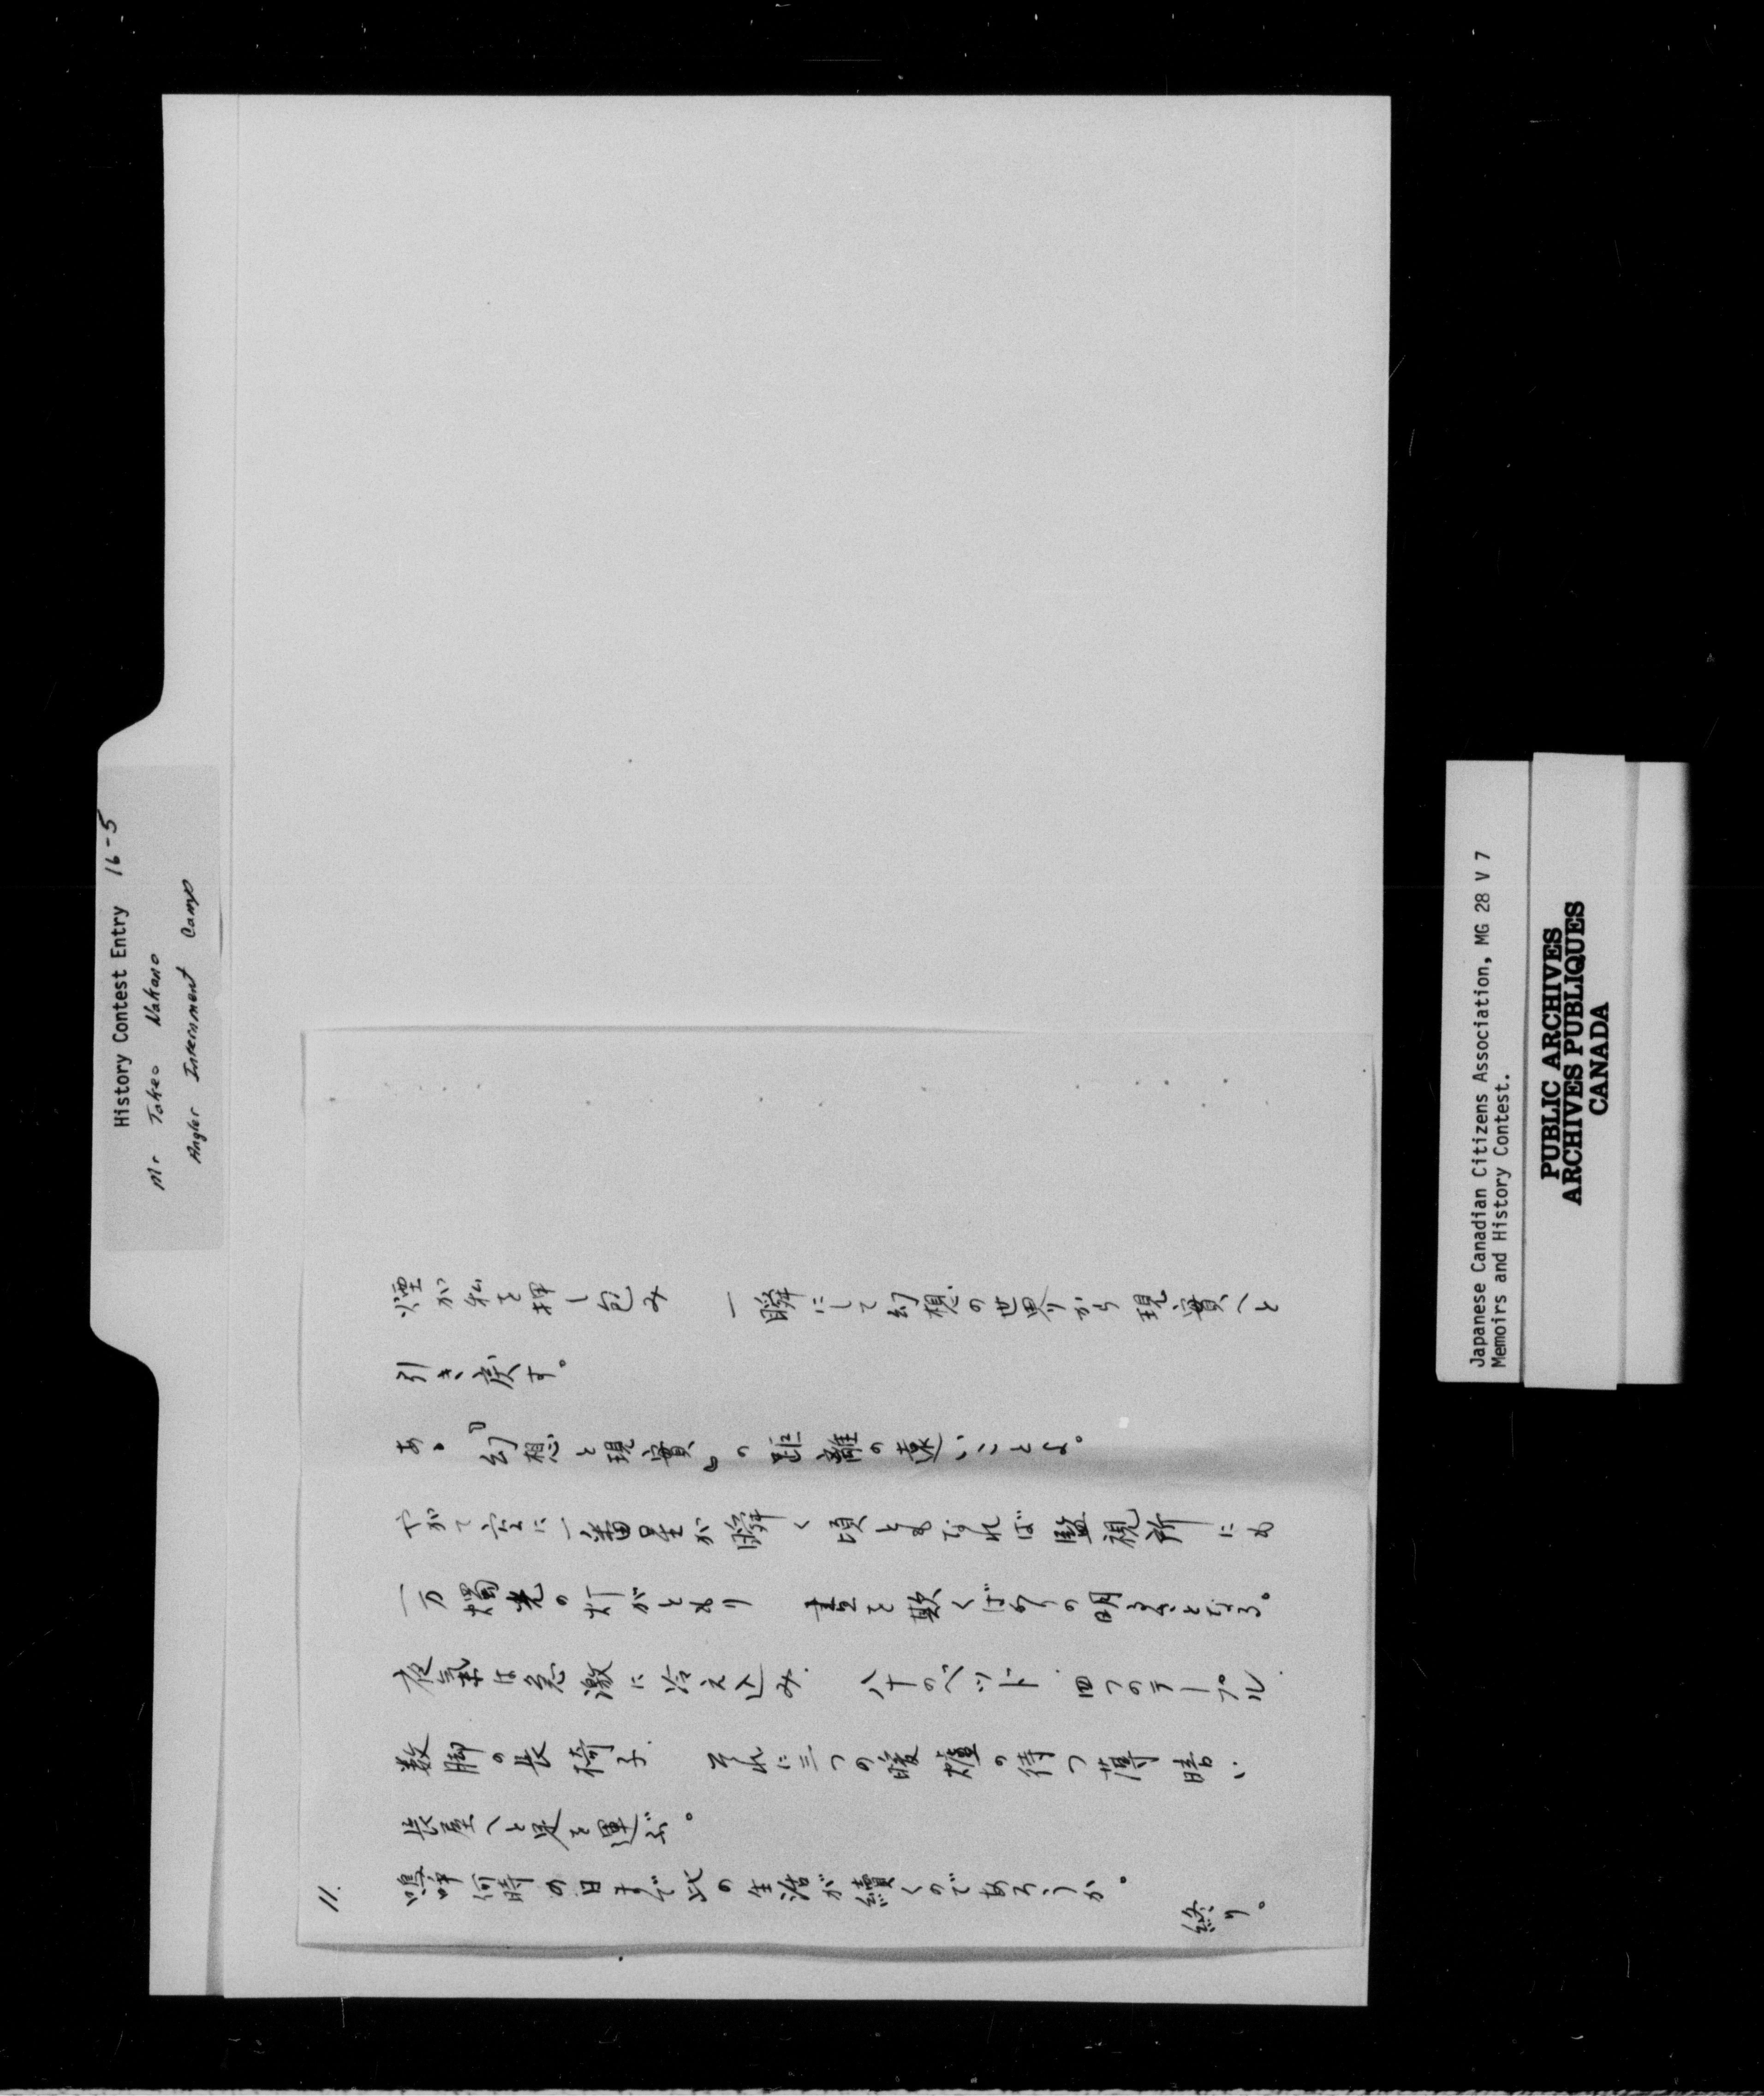 History Contest Entry 16-5
Mr Takeo Nakano
Angler Internment Camp
煙が私を押し包み 一瞬にして幻想の世界から現實へと
引き戻す。
あゝ『幻想と現實』の距離の遠いことよ。
やがて空に一番星が瞬く頃ともなれば監視所にも
一万燭光の灯がともり 昼を欺くばかりの明るさとなる。
夜氣は急激に冷え込み. 八十のベット. 四つのテーブル.
数脚の長椅子. それに三つの暖爐の待つ薄暗い
長屋へと足を運ぶ。
嗚呼何時の日まで此の生活が續くのであろうか。
終り。
11.
Japanese Canadian Citizens Association, MG 28 V 7
Memoirs and History Contest.
PUBLIC ARCHIVES
ARCHIVES PUBLIQUES
CANADA